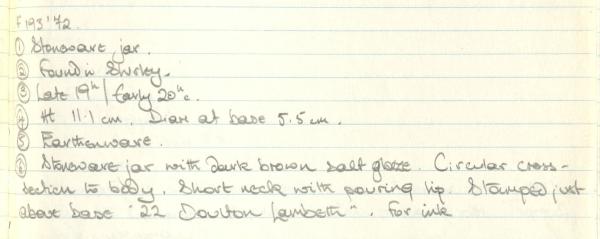 F193'72.
① Stoneware jar.
② Found in Shirley.
③ Late 19th / Early 20th c.
④ Ht 11.1 cm. Diam at base 5.5 cm.
⑤ Earthenware.
⑥ Stoneware jar with dark brown salt glaze. Circular cross-
section to body. Short neck with pouring lip. Stamped just
above base "22 Doulton Lambeth". For ink